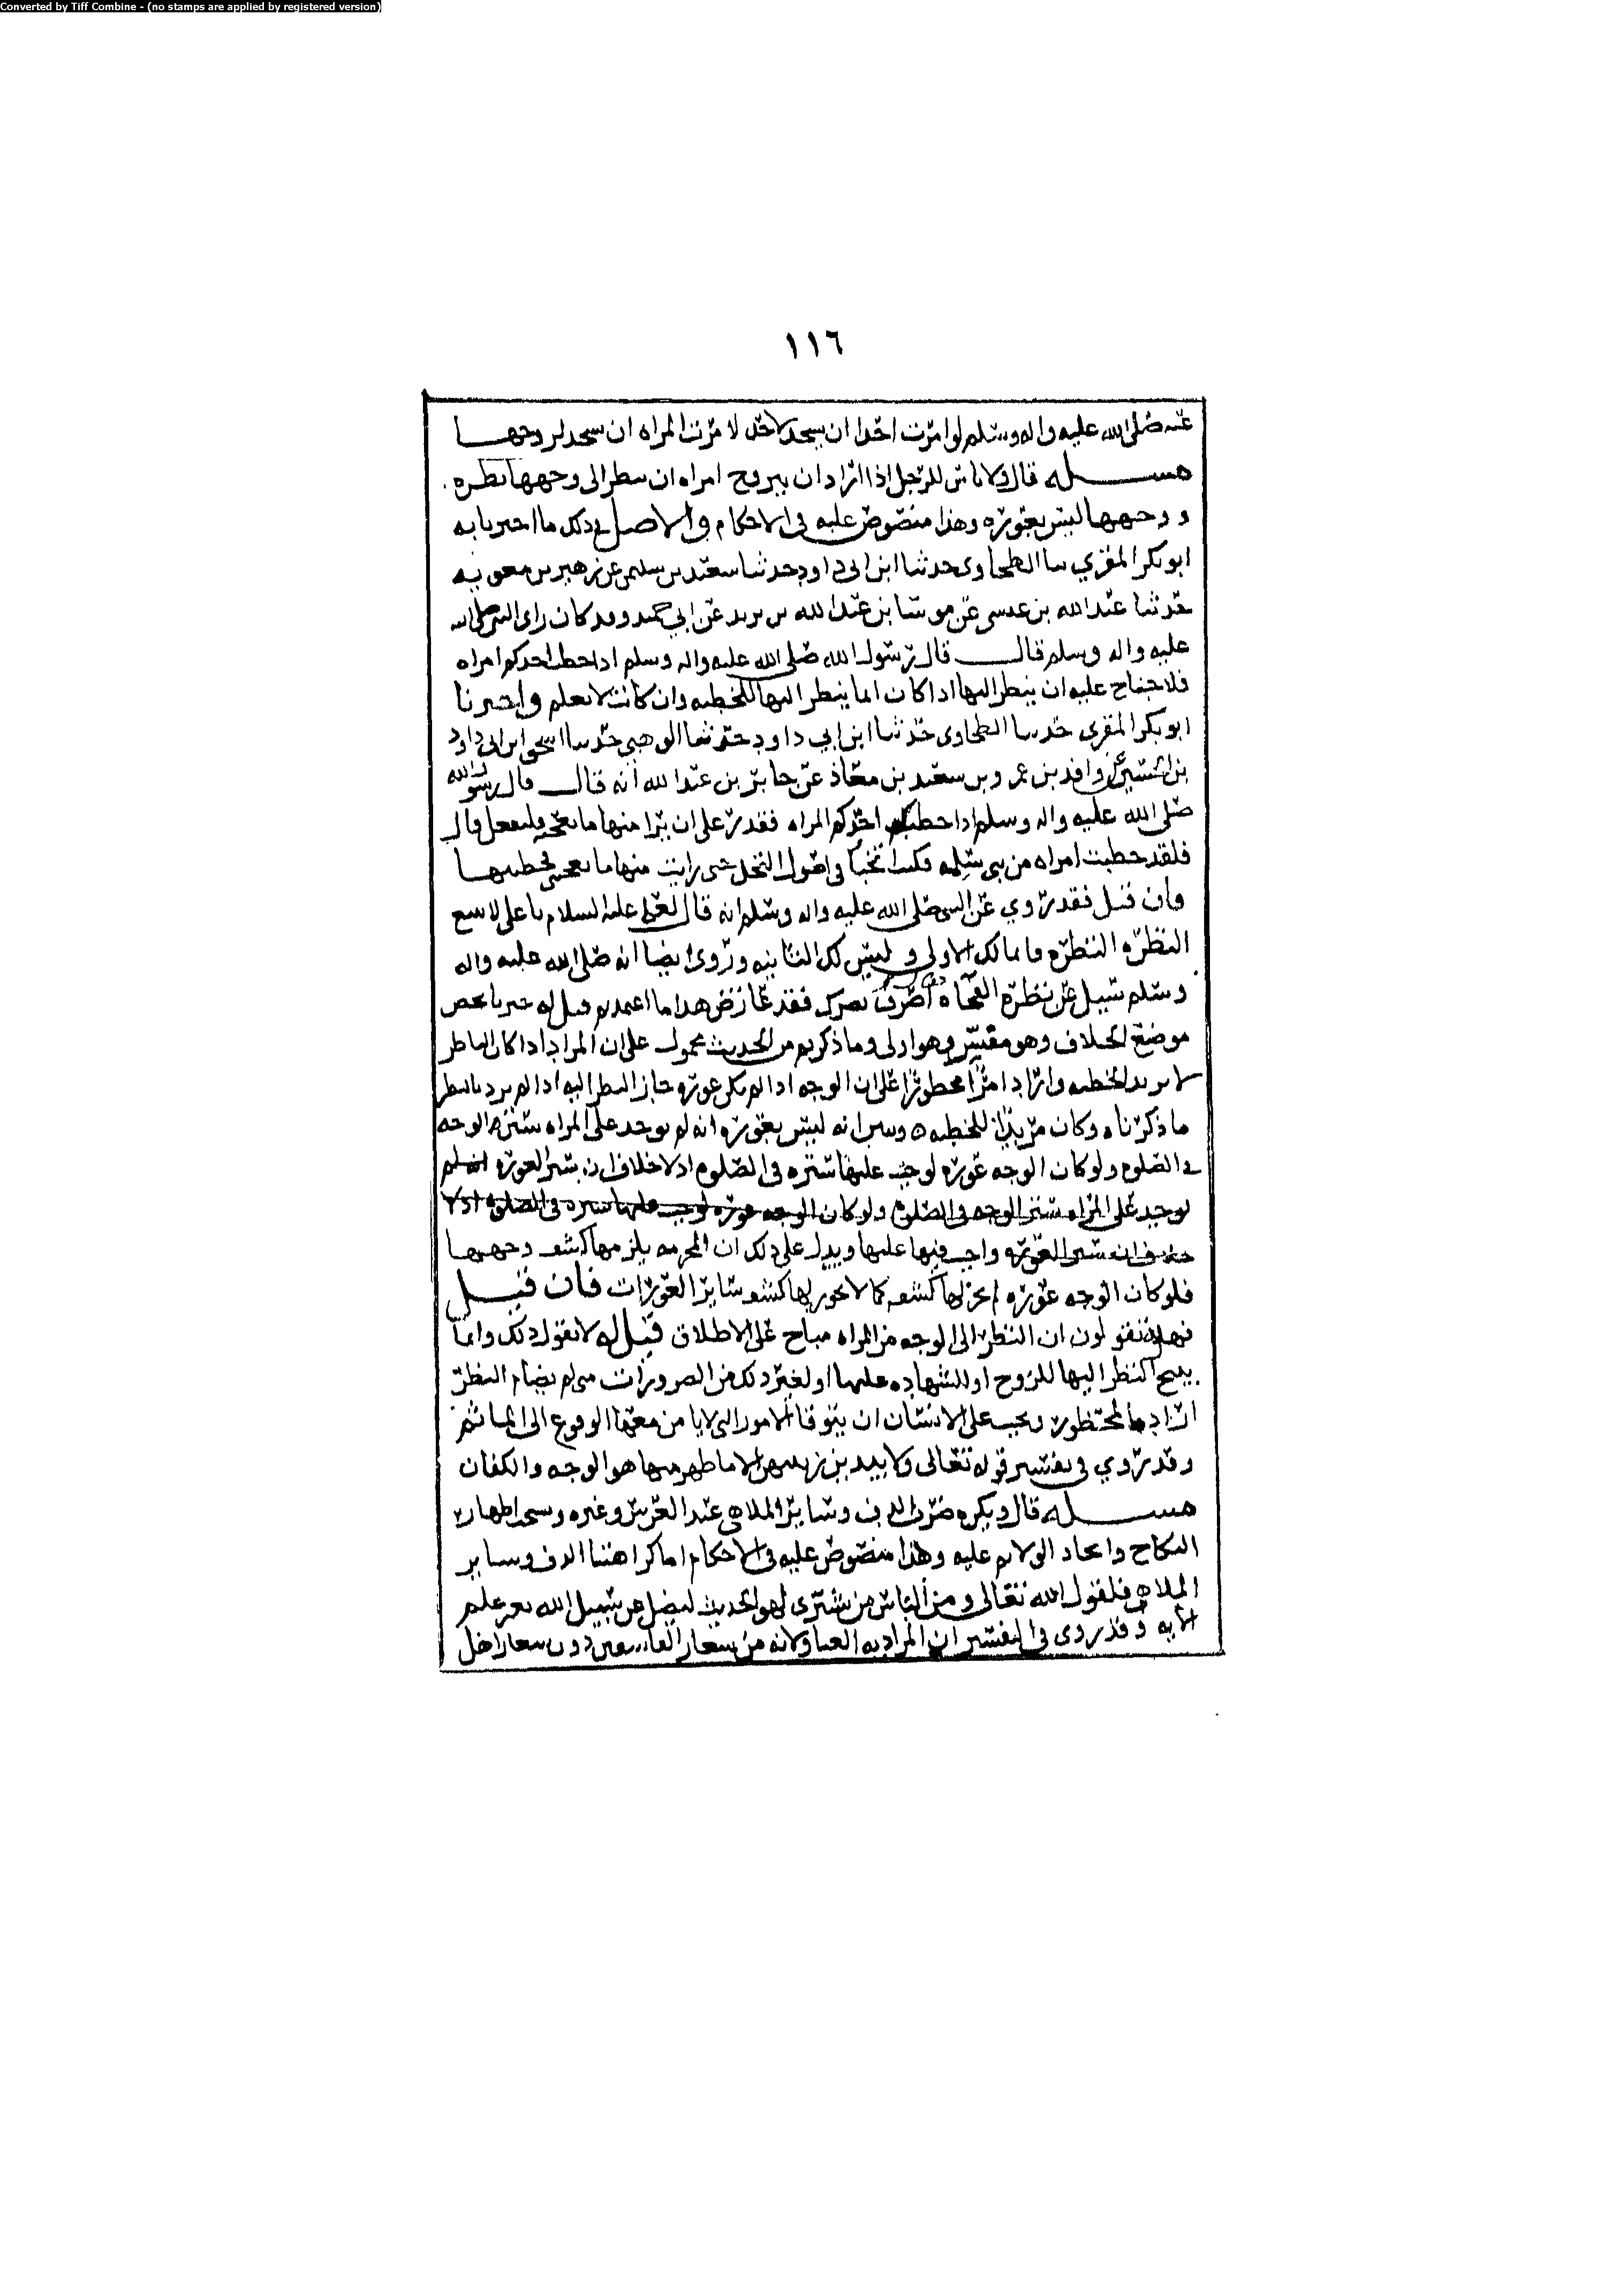 Converted by Tiff Combine - (no stamps are applied by registered version)
١١٦
عنه صلى الله عليه واله وسلم لو امرت احدا ان يسجد لاحد لامرت المراه ان تسجد لزوجها
مسـله قال ولا باس للرجل اذا اراد ان يتزوج امراه ان ينظر الى وجهها نظره
ووجهها ليس بعوره وهذا منصوص عليه في الاحكام والاصل في ذلك ما اخبرنا به
ابو بكر المقري نا الطحاوي حدثنا ابن ابي داود حدثنا سعيد بن سليمن عن زهير بن معويه
حدثنا عبدالله بن عيسى عن موسا بن عبدالله بن يزيد عن ابي حميد وقد كان راى النبي صلى الله
عليه واله وسلم قال قال رسول الله صلى الله عليه واله وسلم اذا خطب احدكم امراه
فلا جناح عليه ان ينظر اليها اذا كان انما ينظر اليها للخطبه وان كانت لا تعلم واخبرنا
ابو بكر المقري حدثنا الطحاوي حدثنا ابن ابي داود حدثنا الوهبي حدثنا اسحق ابن ابي داود
بن الحسين عن واقد بن عمرو بن سعيد بن معاذ عن جابر بن عبدالله انه قال قال رسول الله
صلى الله عليه واله وسلم اذا خطب احدكم المراه فقدر على ان يرا منها ما يعجبه فليفعل قال
فلقد خطبت امراه من بني سلمه فكنت اتخبا في اصول النخل حتى رايت منها ما يعجبني فخطبتها
وان قيل فقد روي عن النبي صلى الله عليه واله وسلم انه قال لعلي عليه السلام يا علي لا تتبع
النظره النظره فانما لك الاولى وليس لك الثانيه وروي ايضا انه صلى الله عليه واله
وسلم سيل عن نظره الفجاه فقال اصرف بصرك فقد عارض هذا ما اعتمدتم قيل له خبرنا يخص
موضع الخلاف وهو مفسر وهو اولى وما ذكرتم من الحديث محمول على ان المراد اذا كان الناظر
لا يريد الخطبه واراد امرا محظورا على ان الوجه اذا لم يكن عوره جاز النظر اليه اذا لم يرد بالنظر
ما ذكرناه وكان مريدا للخطبه ه ويبين انه ليس بعوره انه لم يوجد على المراه ستره الوجه
في الصلوه ولو كان الوجه عوره لوجب عليها ستره في الصلوه اذ لا خلاف ان ستر العوره انه لم
يوجد على المراه ستر الوجه في الصلوه ولو كان الوجه عوره لوجب عليها ستره في الصلوه اذ لا
خلاف ان ستر العوره واجب فيها عليها ويدل على ذلك ان المحرمه يلزمها كشف وجهها
فلو كان الوجه عوره لم يجز لها كشفه كما لا يجوز لها كشف ساير العورات فان قيل
فهل تقولون ان النظر الى الوجه من المراه مباح على الاطلاق قيل له لا نقول ذلك وانما
يبيح النظر اليها للزوج او للشهاده عليها او لغير ذلك من الضرورات متى لم يضام النظر
اراده المحظور ويجب على الانسان ان يتوقا الامور التي لا يامن معها الوقوع الى الماثم
وقد روي في تفسير قوله تعالى ولا يبدين زينتهن الا ما ظهر منها هو الوجه والكفان
مسـله قال ويكره ضرب الدف وساير الملاهي عند العرس وغيره ويستحب اظهار
النكاح واتخاذ الولايم عليه وهذا منصوص عليه في الاحكام اما كراهتنا الدف وساير
الملاهي فلقول الله تعالى ومن الناس من يشتري لهو الحديث ليضل عن سبيل الله بغير علم
الايه وقد روي في التفسير ان المراد به الغنا ولانه من شعار الفاسقين دون شعار اهل